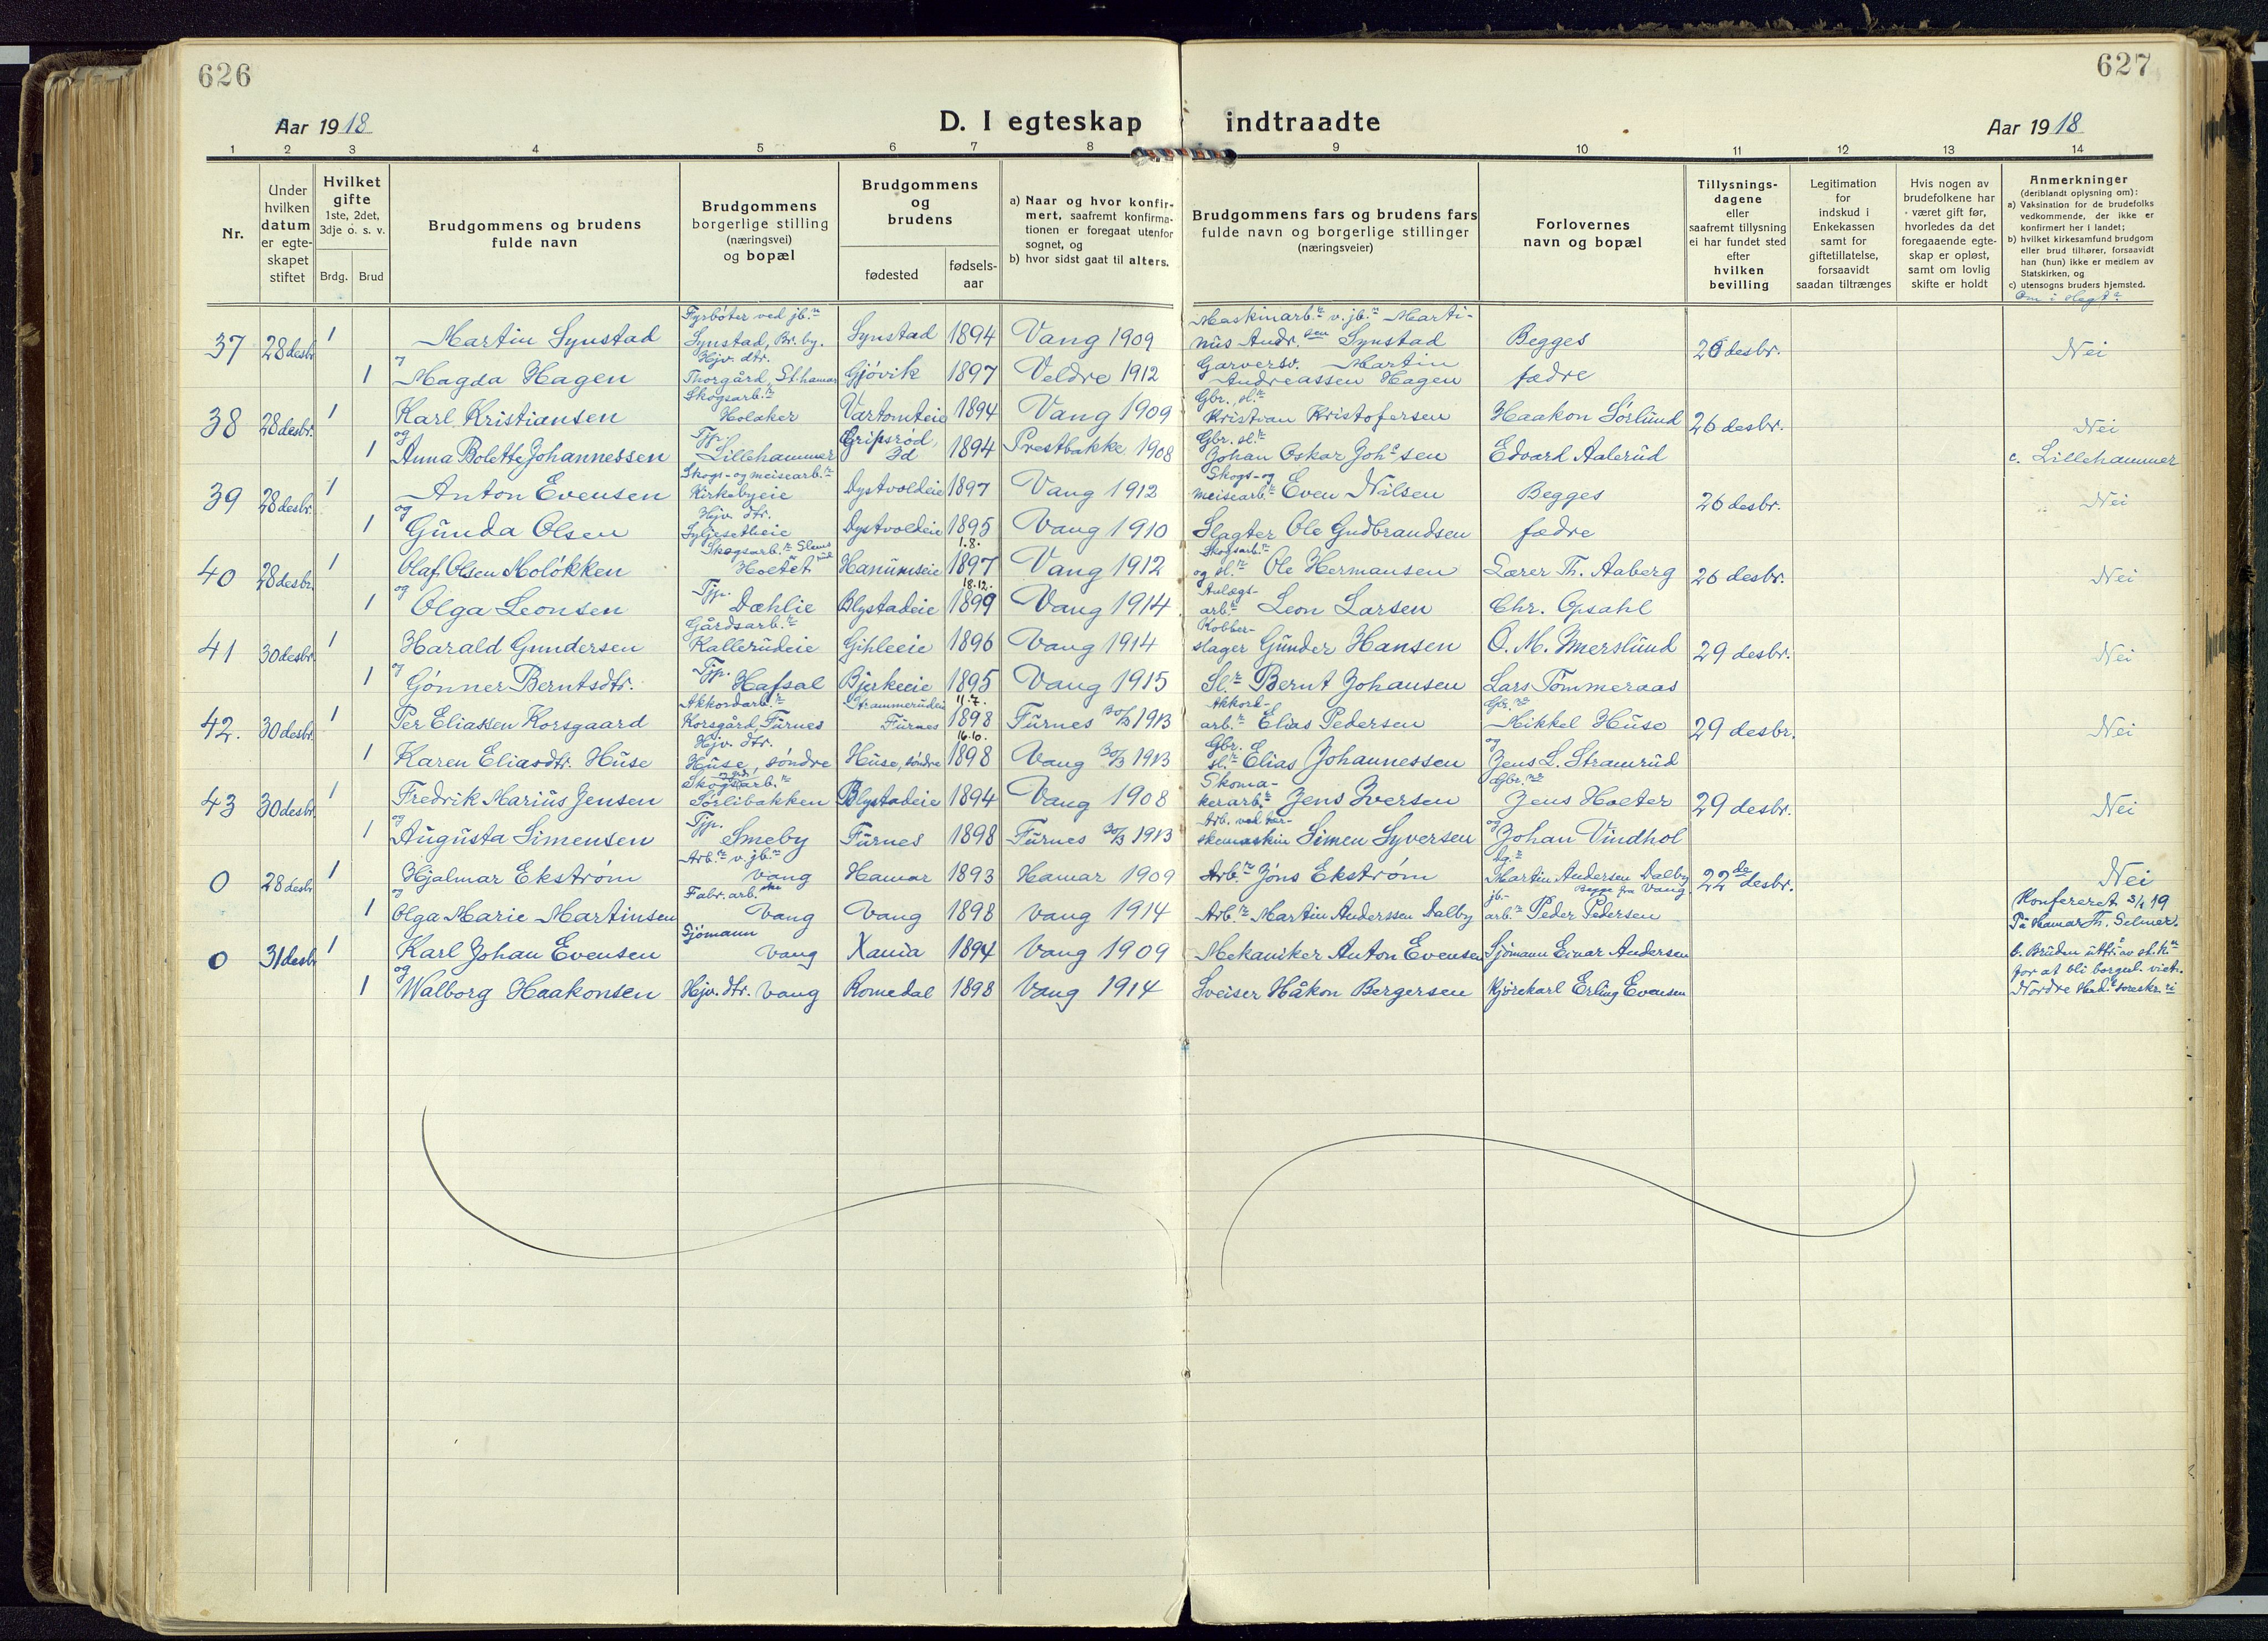 626
627
Aar 1918
D. I egteskap indtraadte
Aar 1918
1 2 3 4 5 6 7 8 9 10 11 12 13 14
Nr.
Under hvilken datum er egte-skapet stiftet
Hvilket gifte
1ste, 2det, 3dje o. s. v.
Brdg. Brud
Brudgommens og brudens fulde navn
Brudgommens borgerlige stilling (næringsvei) og bopæl
Brudgommens og brudens
fødested
fødsels-aar
a) Naar og hvor konfir-mert, saafremt konfirma-tionen er foregaat utenfor sognet, og
b) hvor sidst gaat til alters.
Brudgommens fars og brudens fars fulde navn og borgerlige stillinger (næringsveier)
Forlovernes navn og bopæl
Tillysnings-dagene eller saafremt tillysning ei har fundet sted efter hvilken bevilling
Legitimation for indskud i Enkekassen samt for giftetillatelse, forsaavidt saadan tiltrænges
Hvis nogen av brudefolkene har været gift før, hvorledes da det foregaaende egte-skap er opløst, samt om lovlig skifte er holdt
Anmerkninger
(deriblandt oplysning om):
a) Vaksination for de brudefolks vedkommende, der ikke er konfirmert her i landet;
b) hvilket kirkesamfund brudgom eller brud tilhører, forsaavidt han (hun) ikke er medlem av Statskirken, og
c) utensogns bruders hjemsted.
Om i slegt?
37 28 desbr 1 Martin Synstad Fyrbøter ved jb.n Synstad, Br. by. Synstad 1894 Vang 1909 Maskinarb.r v. jb.n Marti-nus Andr.sen Synstad Begges 26 desbr. Nei
og 1 Magda Hagen Hjv. dtr. Thorgård, St.hamar Gjøvik 1897 Veldre 1912 Garversv. Martin Andreassen Hagen fædre
38 28 desbr. 1 Karl Kristiansen Skogsarb.r Holaker Vartomteie 1894 Vang 1909 Gbr., sl.r Kristian Kristofersen Haakon Sørlund 26 desbr. Nei
og 1 Anna Bolette Johannessen Tjp. Lillehammer Gripsrød, Id 1894 Prestbakke 1908 Gbr. sl.r Johan Oskar Joh.sen Edvard Aalerud c. Lillehammer
39 28 desbr. 1 Anton Evensen Skogs- og meisearb.r Kirkebyeie Dystvoldeie 1897 Vang 1912 Skogs- og meisearb.r Even Nilsen Begges 26 desbr. Nei
og 1 Gunda Olsen Hjv. dtr. Syljesetheie Dystvoldeie 1895 Vang 1910 Slagter Ole Gudbrandsen fædre
40 28 desbr. 1 Olaf Olsen Moløkken Skogsarb.r Hoetet Hanumseie 1.8. 1897 Vang 1912 Skogsarb.r og sl.r Ole Hermansen Lærer Th. Aaberg 26 desbr. Nei
og 1 Olga Leonsen Tjp. Dæhlie Blystadeie 18.12. 1899 Vang 1914 Anlegs-arb.r Leon Larsen Chr. Opsahl
41 30 desbr. 1 Harald Gundersen Gårdsarb.r Kallerudeie Gihleeie 1896 Vang 1914 Kobber-slager Gunder Hansen O. M. Imerslund 29 desbr. Nei
og 1 Gønner Berntsdtr. Tjp. Hafsal Bjerkeeie 1895 Vang 1915 Sl.r Bernt Johansen Lars Tømmeraas
42. 30 desbr. 1 Per Eliassen Korsgaard Akkordarb.r Korsgård Furnes Strammerudeie Furnes 11.7. 1898 Furnes 30/3 1913 Akkord-arb.r Elias Pedersen Gbr.ne Mikkel Huse 29 desbr. Nei
1 Karen Eliasdtr. Huse Hjv. dtr. Huse, søndre Huse, søndre 16.10. 1898 Vang 30/3 1913 Gbr. sl.r Elias Johannessen og Jens L. Stramrud
43 30 desbr. 1 Fredrik Marius Jensen Skogsarb.r Sørlibakken Blystadeie 1894 Vang 1908 Skoma-kerarb.r Jens Iversen Gbr.ne Jens Hoeter 29 desbr. Nei
og 1 Augusta Simensen Tjp. Smeby Furnes 1898 Furnes 30/3 1913 Arb. ved tør-skemaskin Simen Syversen og Johan Vindhol
0 28 desbr 1 Hjalmar Ekstrøm Arb.r v. jb.n Vang Hamar 1893 Hamar 1909 Arb.r Jøns Ekstrøm Martin Andersen Dalby 22de desbr. Nei
og 1 Olga Marie Martinsen Fabr. arb.ske Vang Vang 1898 Vang 1914 Arb.r Martin Anderssen Dalby jb.-arb.r Peder Pedersen Begge fra Vang Konfereret 3/4 19 På Hamar Th. Selmer.
0 31 desbr 1 Karl Johan Evensen Sjømann Vang Xania 1894 Vang 1909 Mekaniker Anton Evensen Sjømann Einar Andersen b. Bruden uttr. av st.k.n
og 1 Walborg Haakonsen Hjv. dtr. Vang Romedal 1898 Vang 1914 Sveiser Håkon Bergersen Kjørekarl Erling Evensen for at bli borgerl. viet. Nordre Hed. soreskr.i